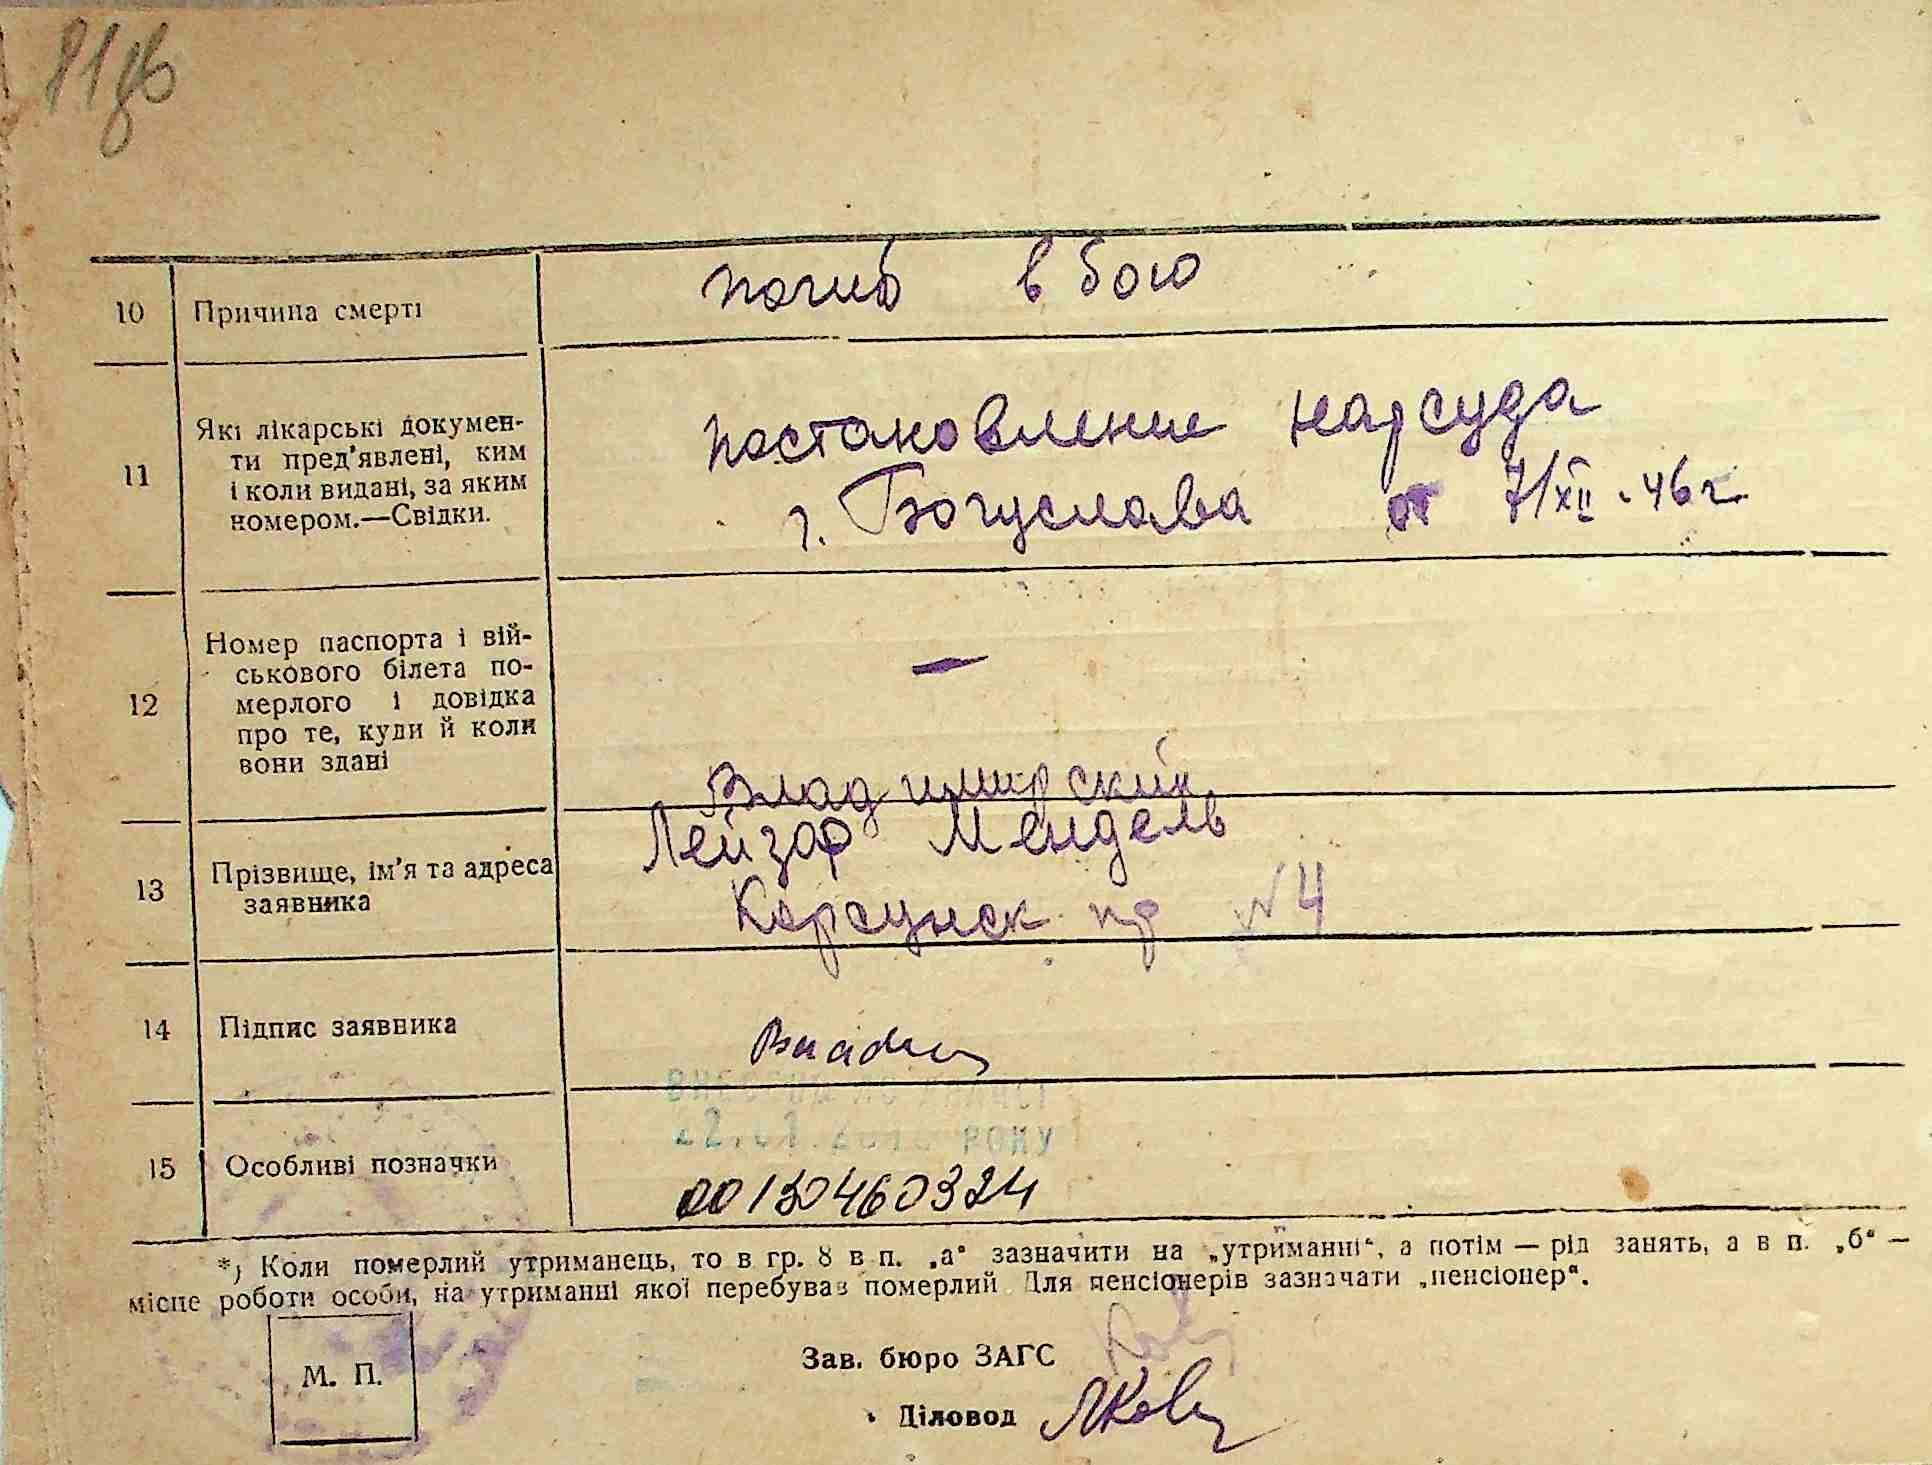 81зв
10 Причина смерті погиб в бою
11 Які лікарські докумен-
ти пред'явлені, ким
і коли видані, за яким
номером.—Свідки.
постановление нарсуда
г. Богуслава от 7/XII-46г
12 Номер паспорта і вій-
ськового білета по-
мерлого і довідка
про те, куди й коли
вони здані
—
13 Прізвище, ім'я та адреса
заявника
Владимирский
Лейзор Мендель
Корсунск. пр №4
14 Підпис заявника
15 Особливі позначки
РОКУ
00130460324
*) Коли померлий утриманець, то в гр. 8 в п. „а“ зазначити на „утриманні“, а потім — рід занять, а в п. „б“ —
місце роботи особи, на утриманні якої перебував померлий. Для пенсіонерів зазначати „пенсіонер“.
М. П.
Зав. бюро ЗАГС
Діловод